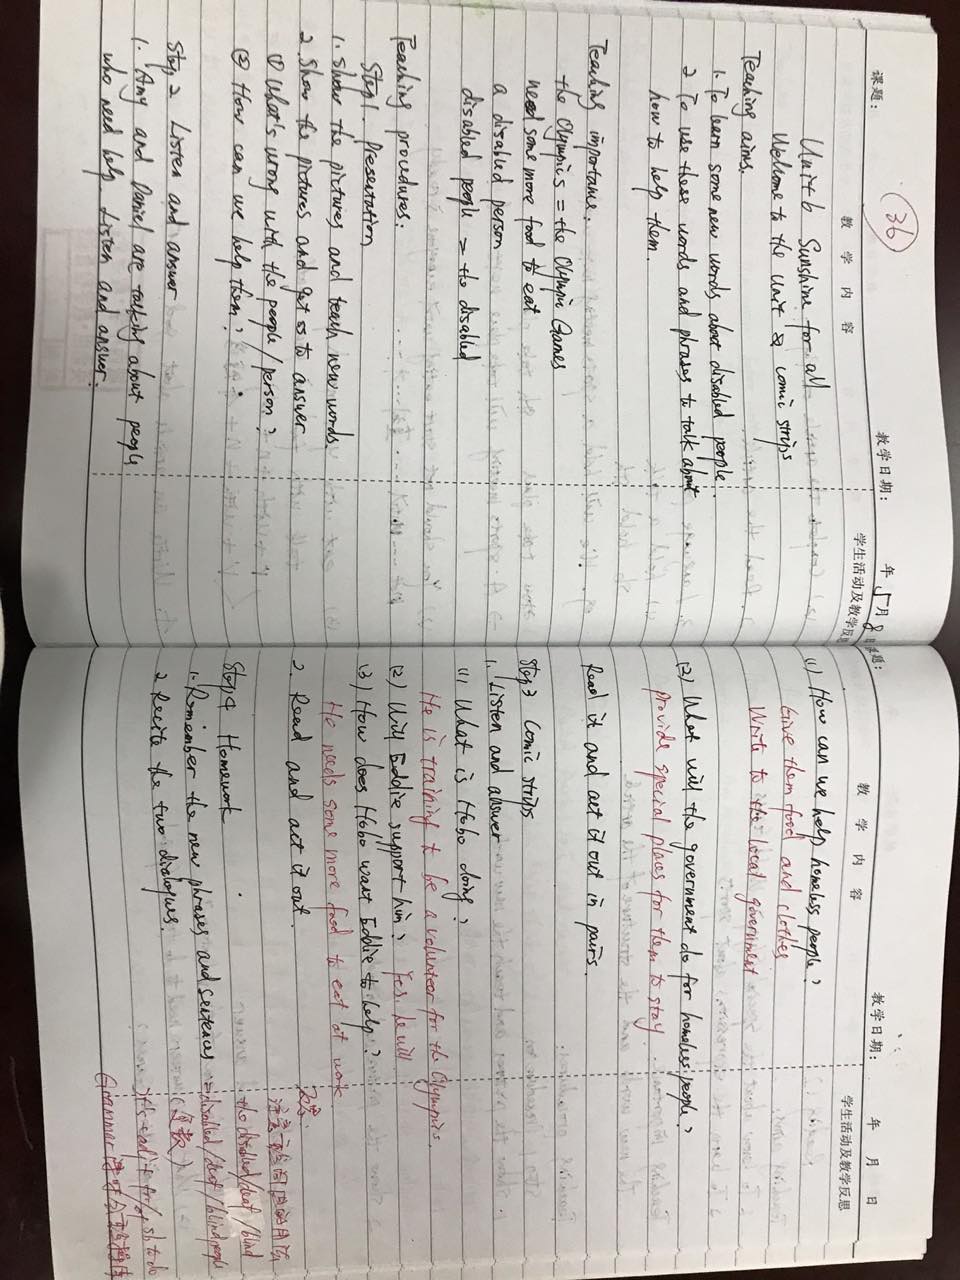 36
课题：
教学日期： 年 5月 8日
教 学 内 容
学生活动及教学反思
Unit 6 Sunshine for all
Welcome to the unit & comic strips
Teaching aims.
1. To learn some new words about disabled people.
2 To use these words and phrases to talk about
how to help them.
Teaching importance.
the Olympics = the Olympic Games
need some more food to eat
a disabled person
disabled people = the disabled
Teaching procedures:
Step1. Presentation
1. Show the pictures and teach new words
2. Show the pictures and get Ss to answer
① What's wrong with the people / person?
② How can we help them?
Step 2 Listen and answer
1. Amy and Daniel are talking about people
who need help. Listen and answer.
课题：
教学日期： 年 月 日
教 学 内 容
学生活动及教学反思
(1) How can we help homeless people?
Give them food and clothes
Write to the local government
(2) What will the government do for homeless people?
Provide special places for them to stay.
Read it and act it out in pairs.
Step 3 Comic strips
1. Listen and answer
(1) What is Hobo doing?
He is training to be a volunteer for the Olympics.
(2) Will Eddie support him? Yes, he will
(3) How does Hobo want Eddie to help?
He needs some more food to eat at work
2. Read and act it out.
Step 4 Homework
1. Remember the new phrases and sentences
2. Recite the two dialogues.
反思.
the disabled/deaf/blind
= disabled/deaf/blind people
(复数)
Grammar